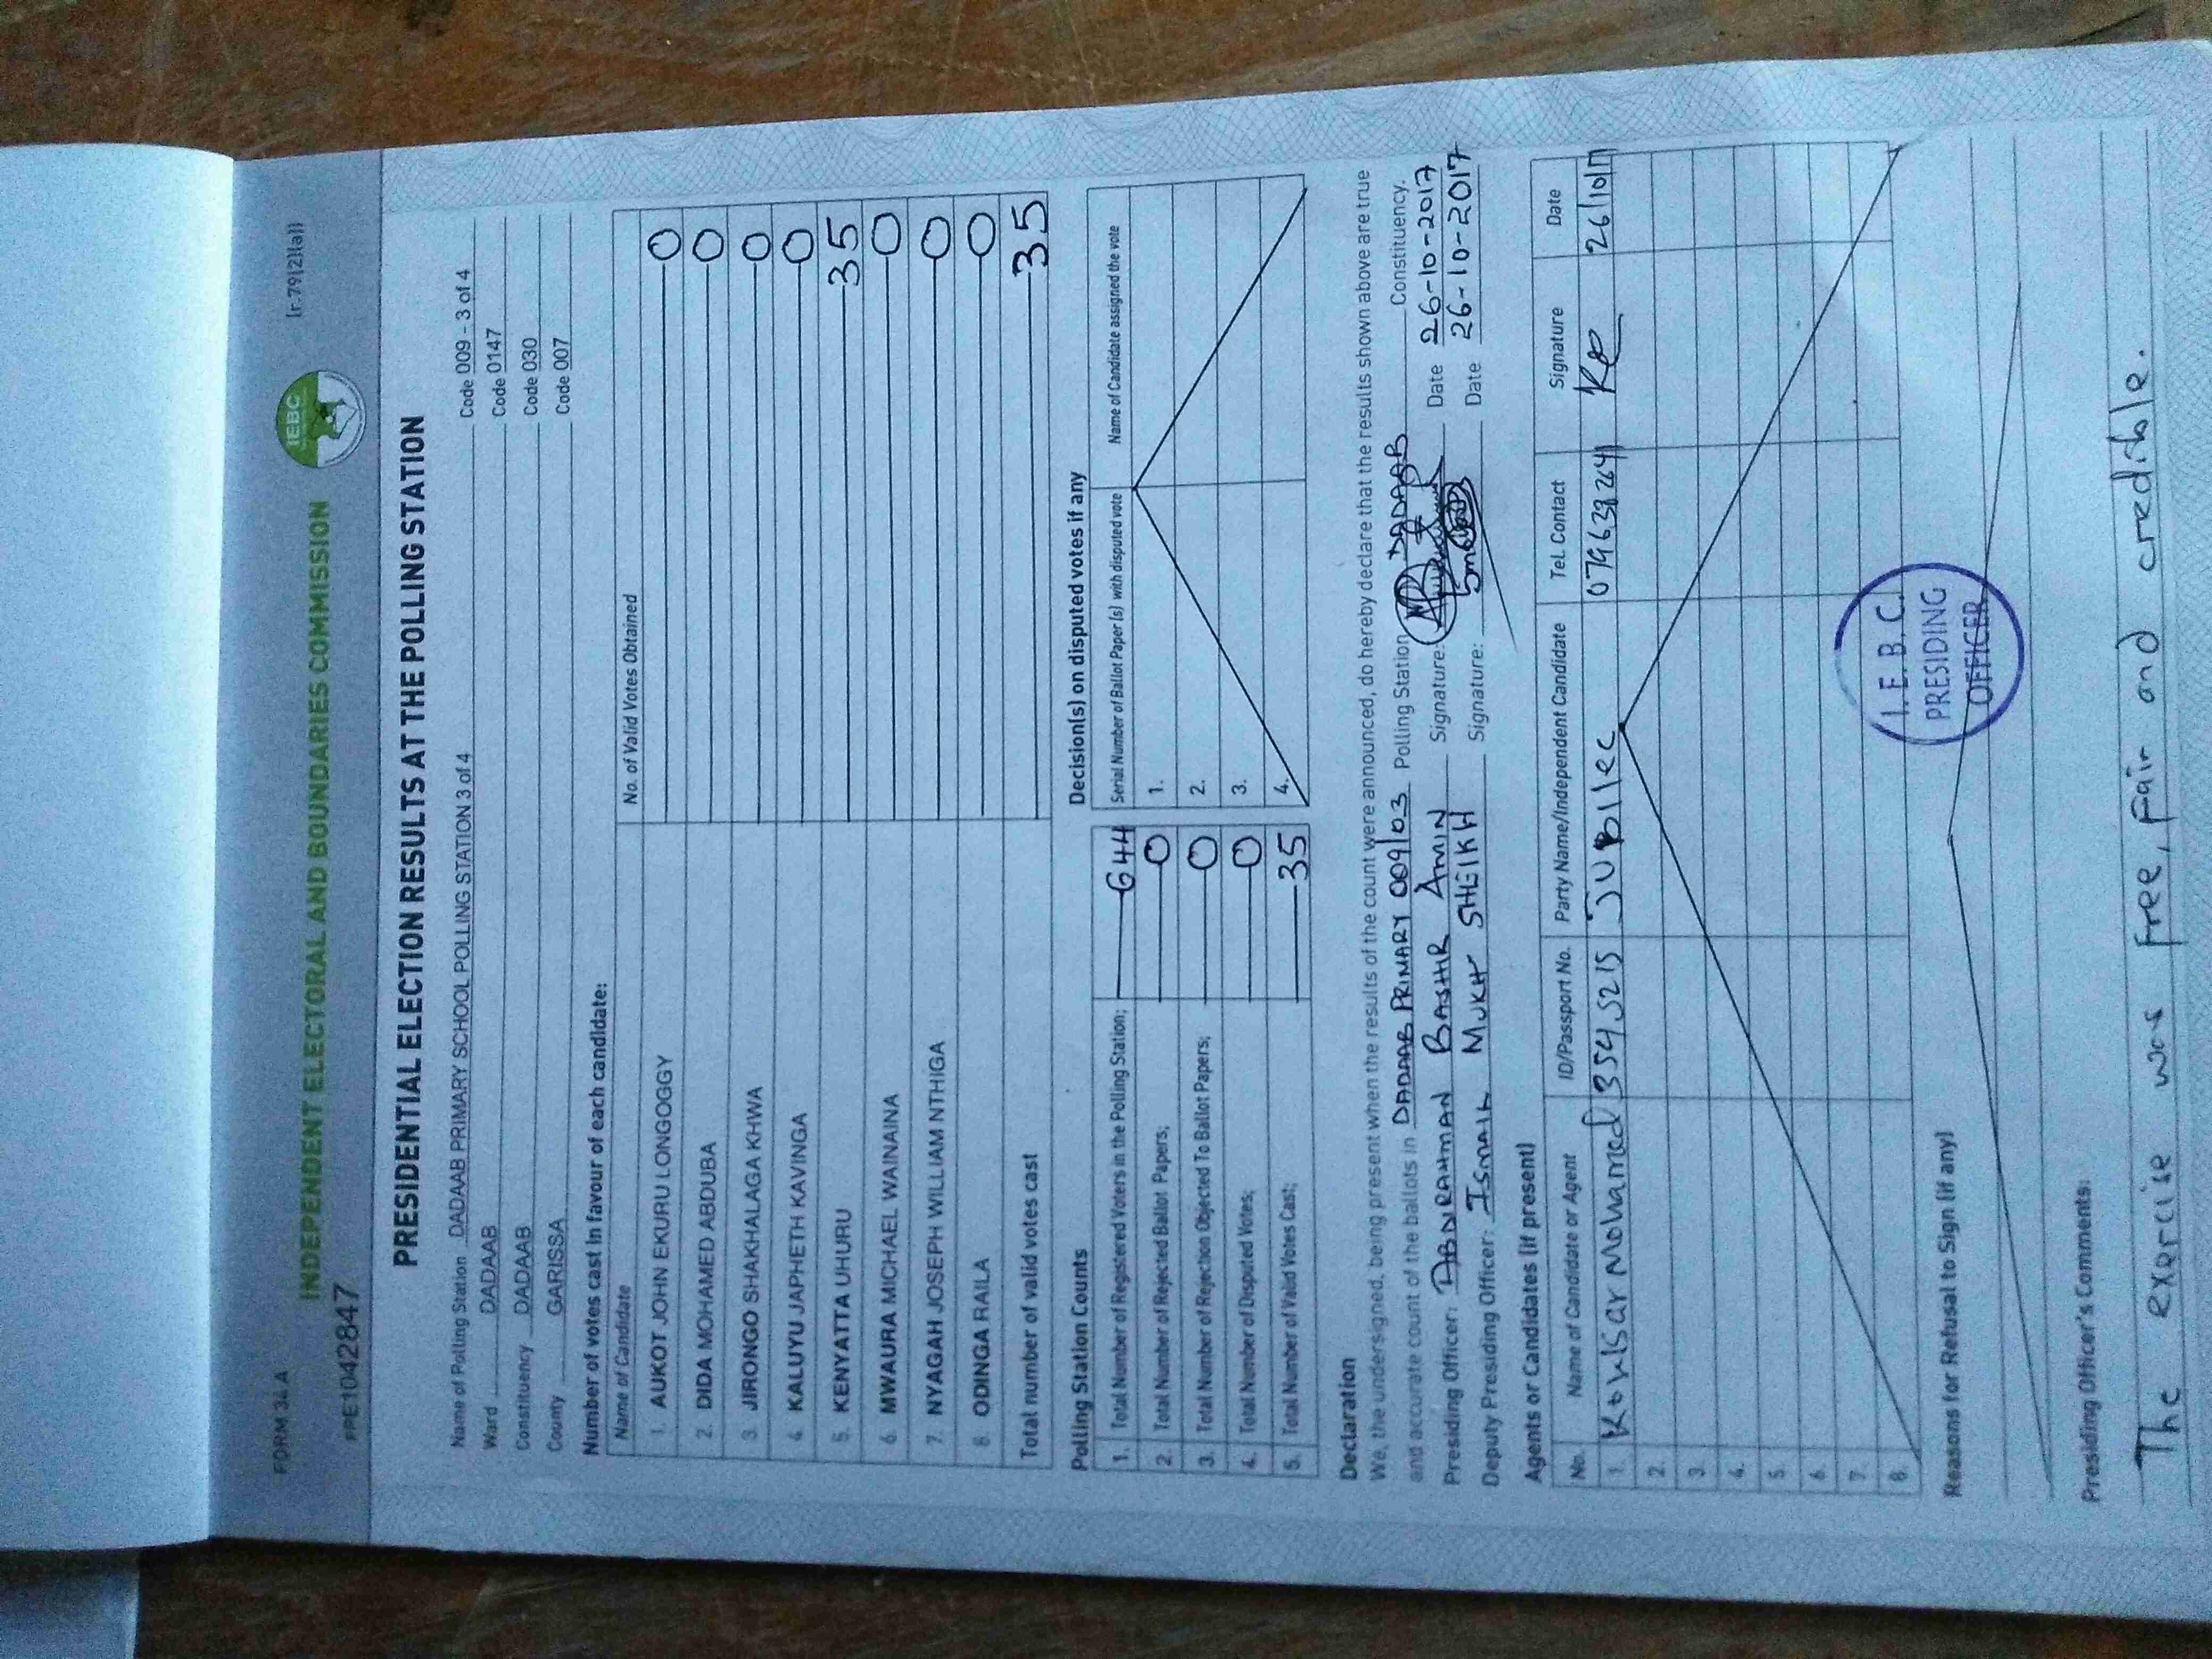 FORM 34 A
INDEPENDENT ELECTORAL AND BOUNDARIES COMMISSION
IEBC
(r.79(2)(a))
PRE1042847
PRESIDENTIAL ELECTION RESULTS AT THE POLLING STATION
Name of Polling Station DADAAB PRIMARY SCHOOL POLLING STATION 3 of 4 Code 009 - 3 of 4
Ward DADAAB Code 0147
Constituency DADAAB Code 030
County GARISSA Code 007
Number of votes cast in favour of each candidate:
Name of Candidate No. of Valid Votes Obtained
1. AUKOT JOHN EKURU LONGOGGY 0
2. DIDA MOHAMED ABDUBA 0
3. JIRONGO SHAKHALAGA KHWA 0
4. KALUYU JAPHETH KAVINGA 0
5. KENYATTA UHURU 35
6. MWAURA MICHAEL WAINAINA 0
7. NYAGAH JOSEPH WILLIAM NTHIGA 0
8. ODINGA RAILA 0
Total number of valid votes cast 35
Polling Station Counts
1. Total Number of Registered Voters in the Polling Station; 644
2. Total Number of Rejected Ballot Papers; 0
3. Total Number of Rejection Objected To Ballot Papers; 0
4. Total Number of Disputed Votes; 0
5. Total Number of Valid Votes Cast; 35
Decision(s) on disputed votes if any
Serial Number of Ballot Paper (s) with disputed vote Name of Candidate assigned the vote
1.
2.
3.
4.
Declaration
We, the undersigned, being present when the results of the count were announced, do hereby declare that the results shown above are true
and accurate count of the ballots in DADAAB PRIMARY 009/03 Polling Station, DADAAB Constituency.
Presiding Officer: ABDIRAHMAN BASHIR AMIN Signature: Date 26-10-2017
Deputy Presiding Officer: ISMAIL MUKH SHEIKH Signature: Date 26-10-2017
Agents or Candidates (if present)
No. Name of Candidate or Agent ID/Passport No. Party Name/Independent Candidate Tel. Contact Signature Date
1. Kowlsar Mohamed 35455215 JUBILEE 26/10/17
2.
3.
4.
5.
6.
7.
8.
I.E.B.C.
PRESIDING
OFFICER
Reasons for Refusal to Sign (if any)
Presiding Officer's Comments:
The exercise was free, fair and creditable.